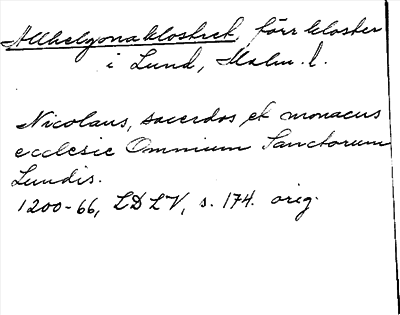 Allhelgonaklostret, förr kloster
i Lund, Malm. l.
Nicolaus, sacerdos et monacus
ecclesie Omnium Sanctorum
Lundis.
1200-66, LDLV, s. 174. orig.